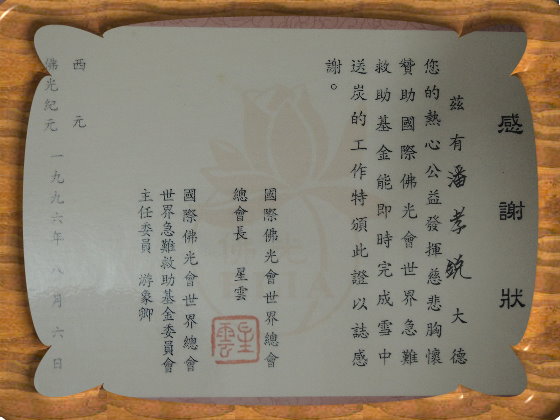 感謝狀
茲有潘孝銳大德
您的熱心公益發揮慈悲胸懷
贊助國際佛光會世界急難
救助基金能即時完成雪中
送炭的工作特頒此證以誌感
謝。
國際佛光會世界總會
總會長 星雲
星雲
國際佛光會世界總會
世界急難救助基金委員會
主任委員 游象卿
西元
佛光紀元 一九九六年八月六日